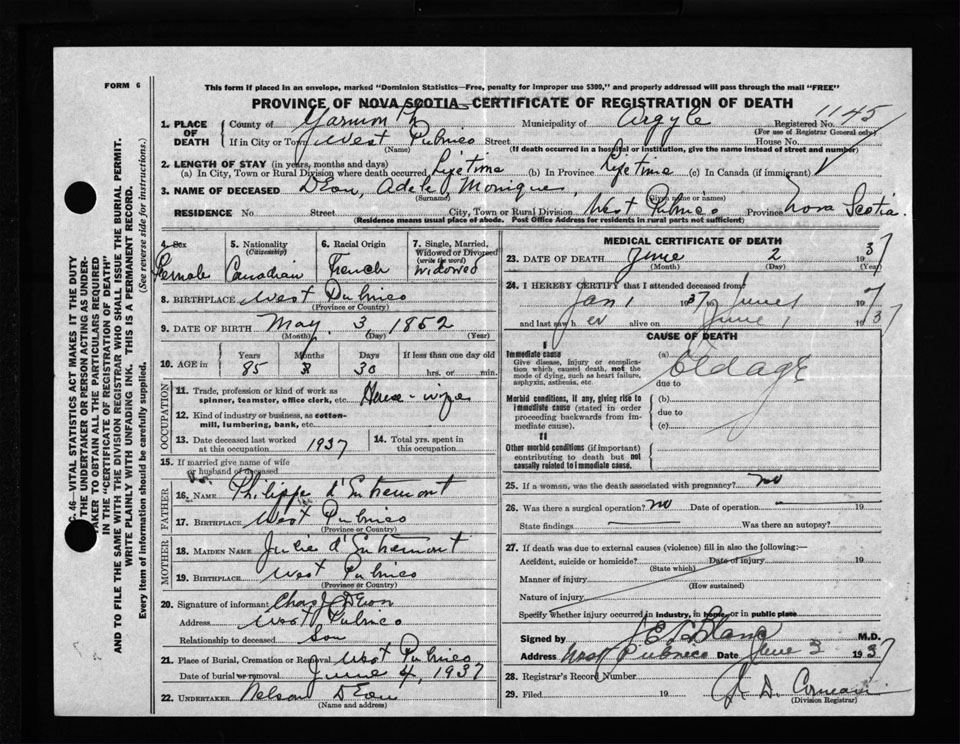 FORM 6
This form if placed in an envelope, marked "Dominion Statistics—Free, penalty for improper use $300," and properly addressed will pass through the mail "FREE"
PROVINCE OF NOVA SCOTIA—CERTIFICATE OF REGISTRATION OF DEATH
1. PLACE OF DEATH
County of Yarmouth Municipality of Argyle Registered No. 1145
(For use of Registrar General only)
If in City or Town West Pubnico Street House No.
(Name) (If death occurred in a hospital or institution, give the name instead of street and number)
2. LENGTH OF STAY (in years, months and days)
(a) In City, Town or Rural Division where death occurred Lifetime (b) In Province Lifetime (c) In Canada (if immigrant)
3. NAME OF DECEASED DEon, Adele Monique
(Surname) (Given name or names)
RESIDENCE No. Street City, Town or Rural Division West Pubnico Province Nova Scotia.
(Residence means usual place of abode. Post Office Address for residents in rural parts not sufficient)
4. Sex Female
5. Nationality (Citizenship) Canadian
6. Racial Origin French
7. Single, Married, Widowed or Divorced (write the word) Widowed
8. BIRTHPLACE West Pubnico
(Province or Country)
9. DATE OF BIRTH May 3, 1852
(Month) (Day) (Year)
10. AGE in Years 85 Months Days 30 If less than one day old hrs. or min.
OCCUPATION
11. Trade, profession or kind of work as spinner, teamster, office clerk, etc. House-wife
12. Kind of industry or business, as cotton-mill, lumbering, bank, etc.
13. Date deceased last worked at this occupation 1937
14. Total yrs. spent in this occupation
15. If married give name of wife or husband of deceased
FATHER
16. NAME Philippe d'Entremont
17. BIRTHPLACE West Pubnico
(Province or Country)
MOTHER
18. MAIDEN NAME Julie d'Entremont
19. BIRTHPLACE West Pubnico
(Province or Country)
20. Signature of informant Chas J DEon
Address West Pubnico
Relationship to deceased Son
21. Place of Burial, Cremation or Removal West Pubnico
Date of burial or removal June 4, 1937
22. UNDERTAKER Nelson DEon
(Name and address)
MEDICAL CERTIFICATE OF DEATH
23. DATE OF DEATH June 2 1937
(Month) (Day) (Year)
24. I HEREBY CERTIFY that I attended deceased from
Jan 1 1937 to June 1 1937
and last saw her alive on June 1 1937
CAUSE OF DEATH
I
Immediate cause
Give disease, injury or complication which caused death, not the mode of dying, such as heart failure, asphyxia, asthenia, etc.
(a) Old age
due to
Morbid conditions, if any, giving rise to immediate cause (stated in order proceeding backwards from immediate cause).
(b)
due to
(c)
II
Other morbid conditions (if important) contributing to death but not causally related to immediate cause.
25. If a woman, was the death associated with pregnancy? no
26. Was there a surgical operation? no Date of operation 19
State findings Was there an autopsy?
27. If death was due to external causes (violence) fill in also the following:—
Accident, suicide or homicide? Date of injury 19
(State which)
Manner of injury
(How sustained)
Nature of injury
Specify whether injury occurred in industry, in home, or in public place
Signed by J E LeBlanc M.D.
Address West Pubnico Date June 3 1937
28. Registrar's Record Number
29. Filed
(Division Registrar)
C. 46—VITAL STATISTICS ACT MAKES IT THE DUTY
THE UNDERTAKER OR PERSON ACTING AS UNDERTAKER TO OBTAIN ALL THE PARTICULARS REQUIRED
IN THE "CERTIFICATE OF REGISTRATION OF DEATH"
AND TO FILE THE SAME WITH THE DIVISION REGISTRAR WHO SHALL ISSUE THE BURIAL PERMIT.
WRITE PLAINLY WITH UNFADING INK. THIS IS A PERMANENT RECORD.
Every item of information should be carefully supplied. (See reverse side for instructions.)